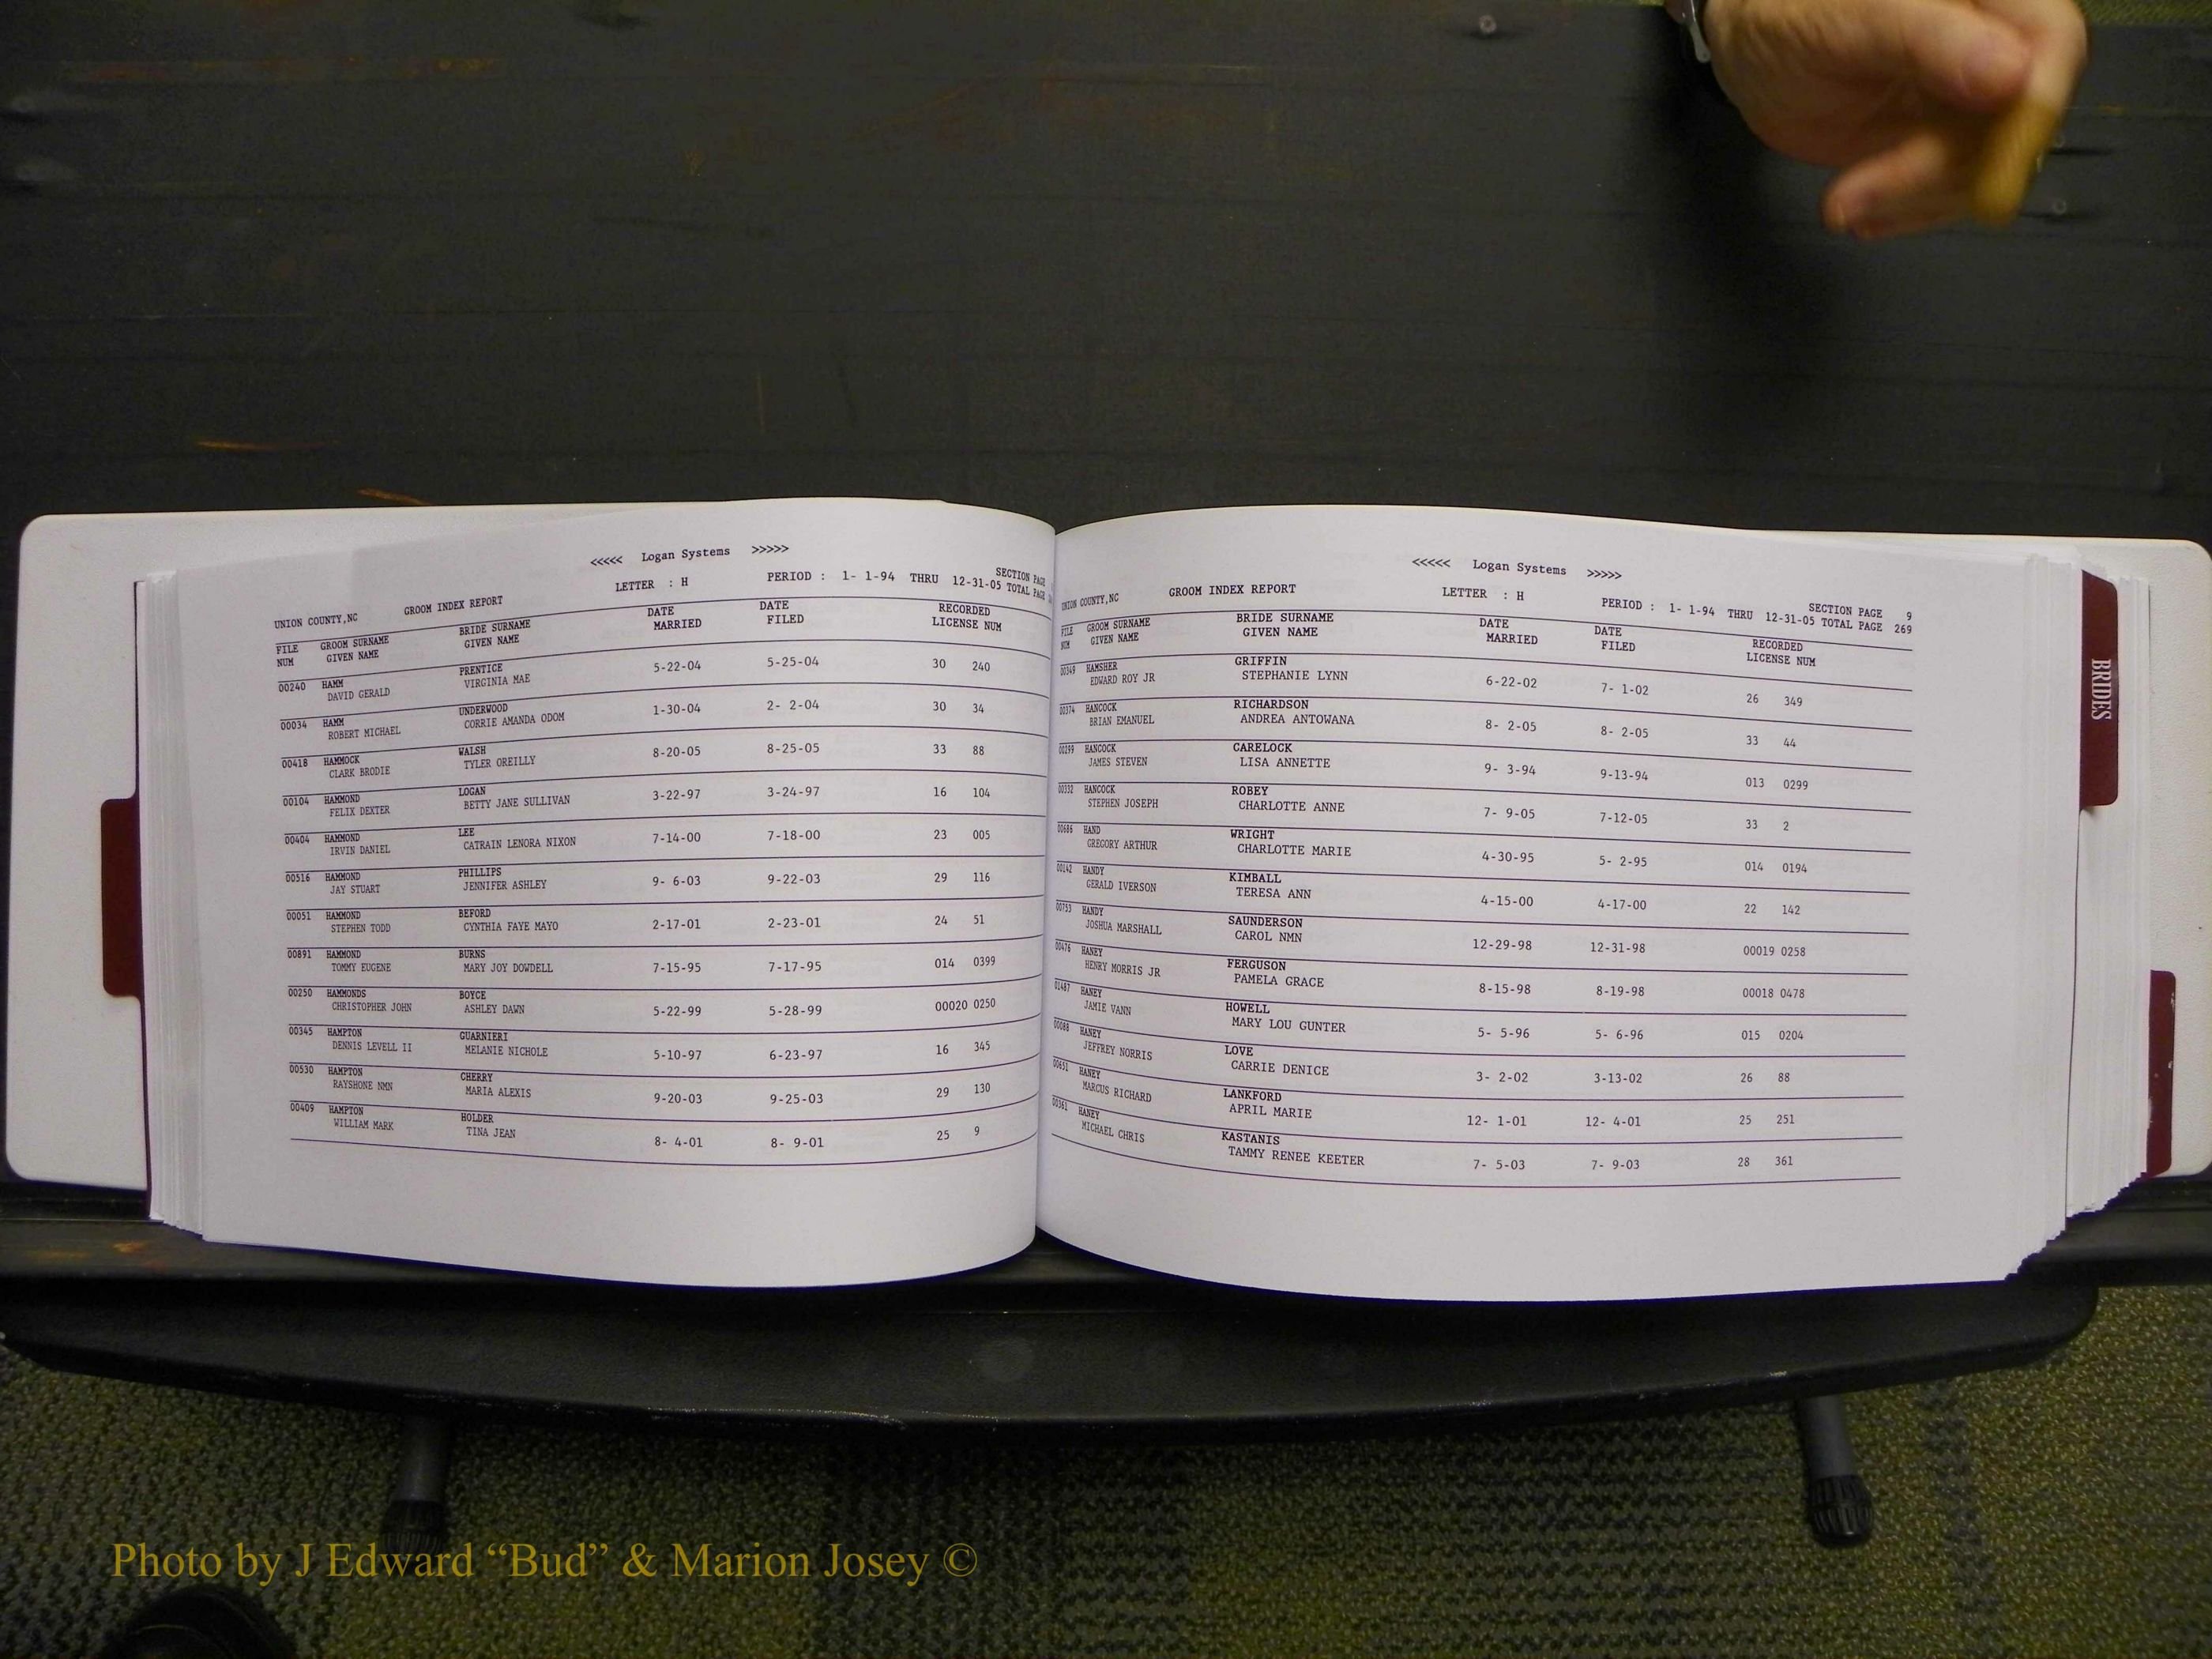 <<<<< Logan Systems >>>>>
UNION COUNTY,NC GROOM INDEX REPORT LETTER : H PERIOD : 1- 1-94 THRU 12-31-05 SECTION PAGE
TOTAL PAGE
FILE GROOM SURNAME BRIDE SURNAME DATE DATE RECORDED
NUM GIVEN NAME GIVEN NAME MARRIED FILED LICENSE NUM
00240 HAMM PRENTICE 5-22-04 5-25-04 30 240
DAVID GERALD VIRGINIA MAE
00034 HAMM UNDERWOOD 1-30-04 2- 2-04 30 34
ROBERT MICHAEL CORRIE AMANDA ODOM
00418 HAMMOCK WALSH 8-20-05 8-25-05 33 88
CLARK BRODIE TYLER OREILLY
00104 HAMMOND LOGAN 3-22-97 3-24-97 16 104
FELIX DEXTER BETTY JANE SULLIVAN
00404 HAMMOND LEE 7-14-00 7-18-00 23 005
IRVIN DANIEL CATRAIN LENORA NIXON
00516 HAMMOND PHILLIPS 9- 6-03 9-22-03 29 116
JAY STUART JENNIFER ASHLEY
00051 HAMMOND BEFORD 2-17-01 2-23-01 24 51
STEPHEN TODD CYNTHIA FAYE MAYO
00891 HAMMOND BURNS 7-15-95 7-17-95 014 0399
TOMMY EUGENE MARY JOY DOWDELL
00250 HAMMONDS BOYCE 5-22-99 5-28-99 00020 0250
CHRISTOPHER JOHN ASHLEY DAWN
00345 HAMPTON GUARNIERI 5-10-97 6-23-97 16 345
DENNIS LEVELL II MELANIE NICHOLE
00530 HAMPTON CHERRY 9-20-03 9-25-03 29 130
RAYSHONE NMN MARIA ALEXIS
00409 HAMPTON HOLDER 8- 4-01 8- 9-01 25 9
WILLIAM MARK TINA JEAN
<<<<< Logan Systems >>>>>
UNION COUNTY,NC GROOM INDEX REPORT LETTER : H PERIOD : 1- 1-94 THRU 12-31-05 SECTION PAGE 9
TOTAL PAGE 269
FILE GROOM SURNAME BRIDE SURNAME DATE DATE RECORDED
NUM GIVEN NAME GIVEN NAME MARRIED FILED LICENSE NUM
00349 HAMSHER GRIFFIN 6-22-02 7- 1-02 26 349
EDWARD ROY JR STEPHANIE LYNN
00374 HANCOCK RICHARDSON 8- 2-05 8- 2-05 33 44
BRIAN EMANUEL ANDREA ANTOWANA
00299 HANCOCK CARELOCK 9- 3-94 9-13-94 013 0299
JAMES STEVEN LISA ANNETTE
00332 HANCOCK ROBEY 7- 9-05 7-12-05 33 2
STEPHEN JOSEPH CHARLOTTE ANNE
00686 HAND WRIGHT 4-30-95 5- 2-95 014 0194
GREGORY ARTHUR CHARLOTTE MARIE
00142 HANDY KIMBALL 4-15-00 4-17-00 22 142
GERALD IVERSON TERESA ANN
00753 HANDY SAUNDERSON 12-29-98 12-31-98 00019 0258
JOSHUA MARSHALL CAROL NMN
00476 HANEY FERGUSON 8-15-98 8-19-98 00018 0478
HENRY MORRIS JR PAMELA GRACE
01487 HANEY HOWELL 5- 5-96 5- 6-96 015 0204
JAMIE VANN MARY LOU GUNTER
00088 HANEY LOVE 3- 2-02 3-13-02 26 88
JEFFREY NORRIS CARRIE DENICE
00651 HANEY LANKFORD 12- 1-01 12- 4-01 25 251
MARCUS RICHARD APRIL MARIE
00361 HANEY KASTANIS 7- 5-03 7- 9-03 28 361
MICHAEL CHRIS TAMMY RENEE KEETER
BRIDES
Photo by J Edward “Bud” & Marion Josey ©